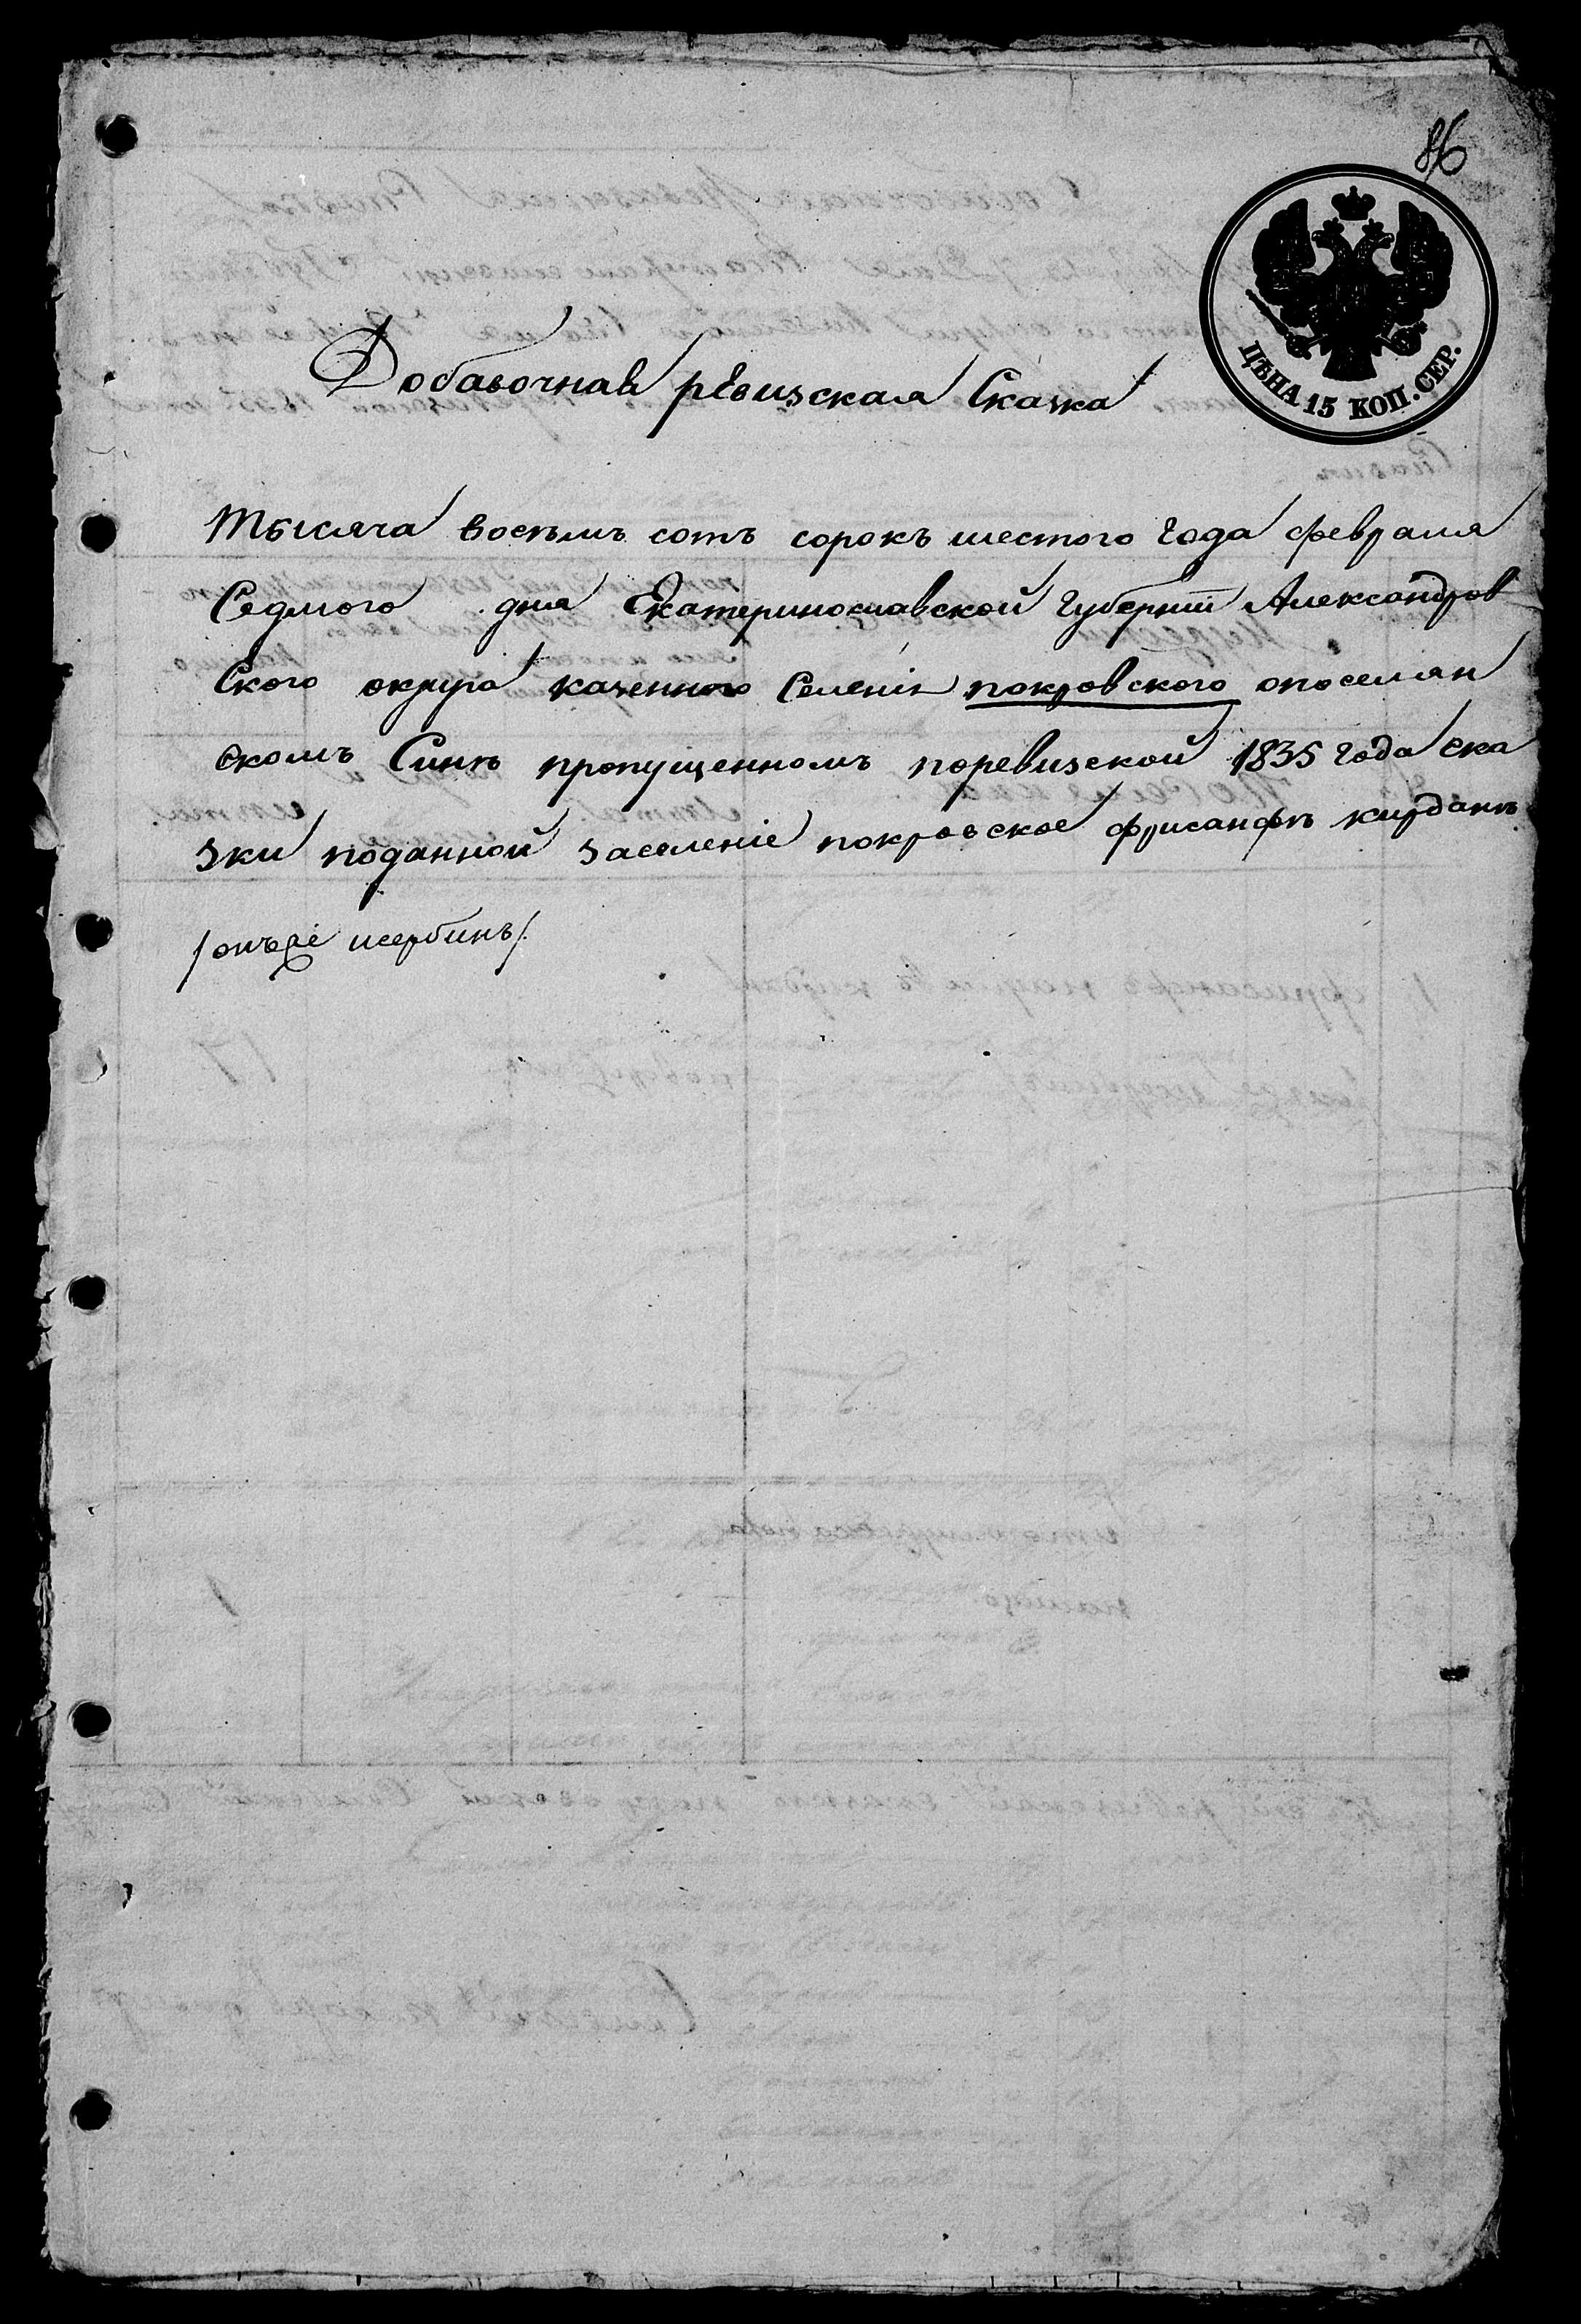 86
ЦѢНА 15 КОП. СЕР.
Добавочная ревизская Сказка
Тысяча восемь сотъ сорокъ шестого года февраля
Седмого дня Екатеринославской губерніи Александров
Ского округа казенного Селенія покровского опоселян
скомъ Синѣ пропущенномъ поревизской 1835 года ска
зки поданной заселеніе покровское фрисанфѣ кирданѣ
/онъже щербинъ/.